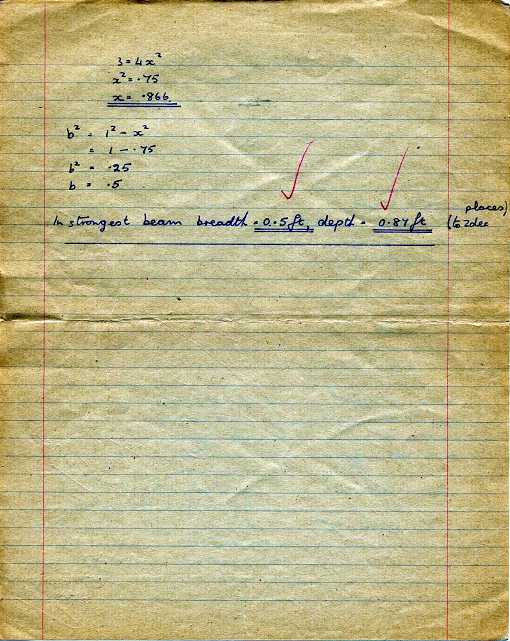 3 = 4x²
x² = ·75
x = ·866
b² = 1² - x²
= 1 - ·75
b² = ·25
b = ·5
In strongest beam breadth = 0.5 ft, depth = 0.87 ft (to 2 dec
places)